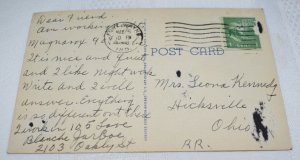 Dear Friend
Am working
Magnavox 9
It is nice and quiet
and I like night work
Write and I will
answer. Everything
is so different out there
I work in 105 Love
Blanche
2103 Oakley St
POST CARD
Mrs. Leona Kennedy
Hicksville
Ohio
R.R.